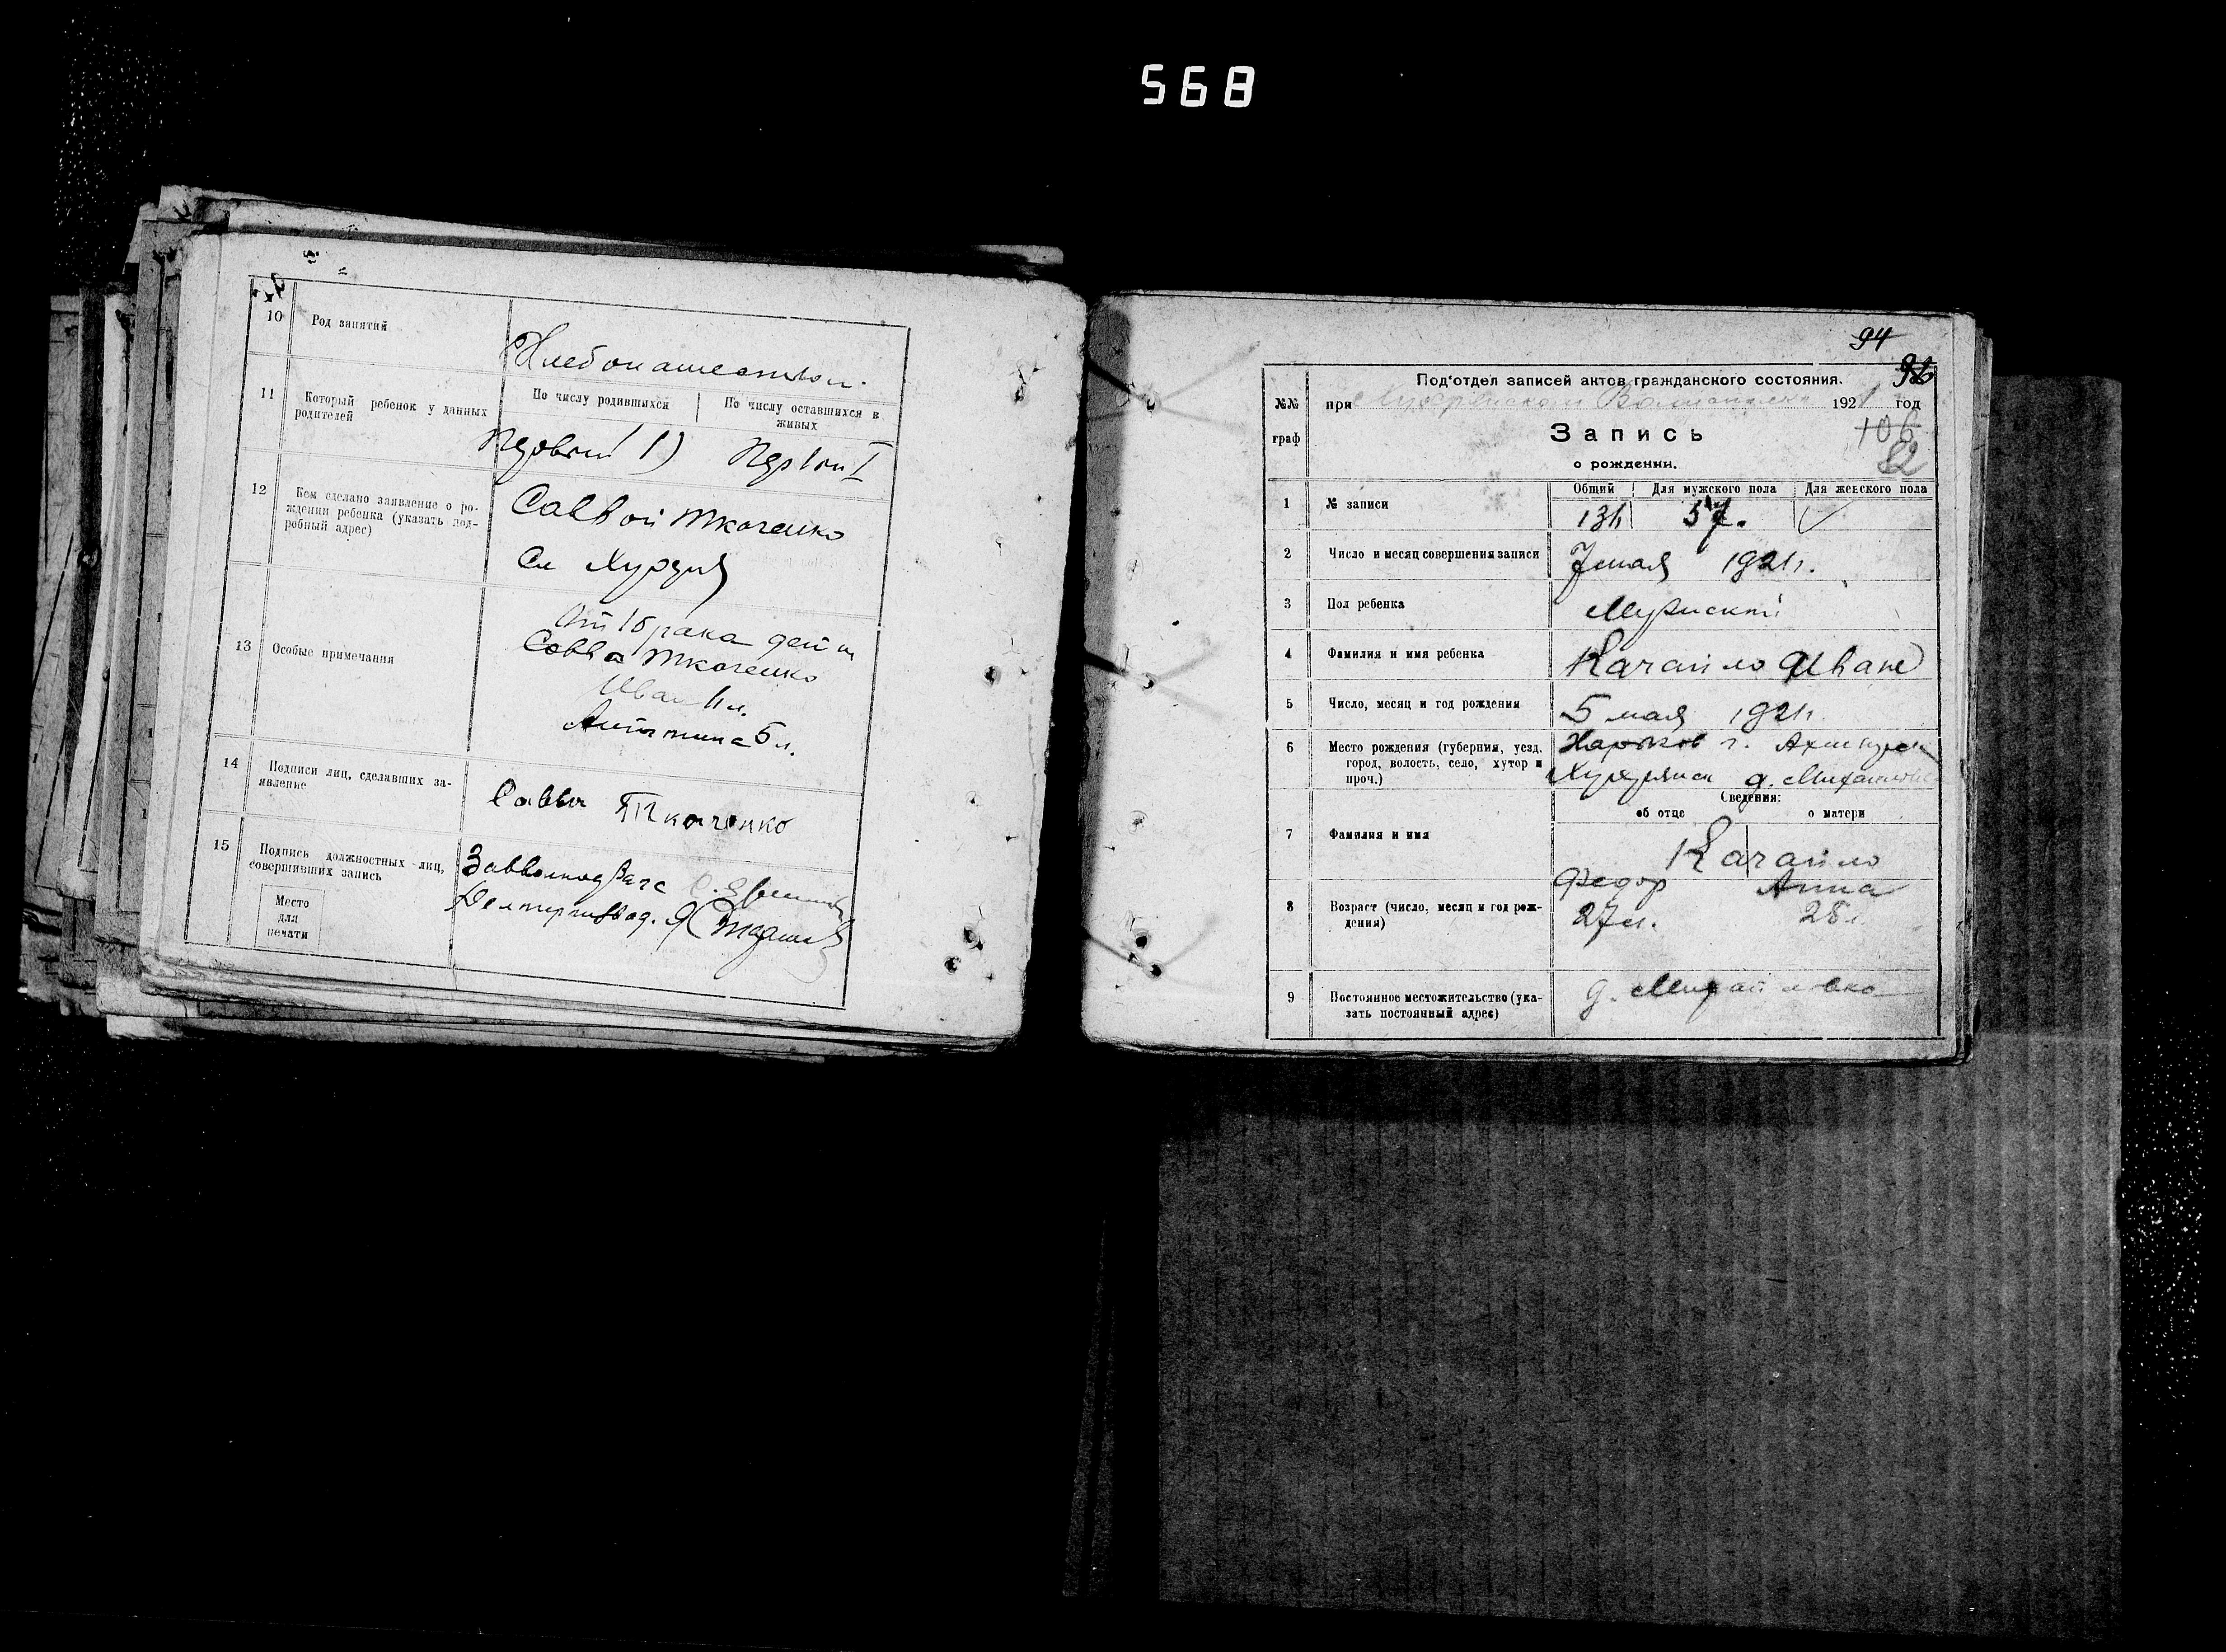 568
10 Род занятий
Хлебопашество
11 Который ребенок у данных родителей
По числу родившихся
По числу оставшихся в живых
12 Кем сделано заявление о ро-
ждении ребенка (указать под-
робный адрес)
Саввой Ткаченко
Сл
13 Особые примечания
брака дети
Савва Ткаченко
Иван 11 л.
5 л.
14 Подписи лиц, сделавших за-
явление
Савва Ткаченко
15 Подпись должностных лиц,
совершивших запись
Место
для
печати
94
Под'отдел записей актов гражданского состояния.
№№
граф
при 1921 год
Запись
106
о рождении.
92
Общий
Для мужского пола
Для женского пола
1 № записи
57.
2 Число и месяц совершения записи
7 мая 1921 г.
3 Пол ребенка
Мужской
4 Фамилия и имя ребенка
Качайло Иван
5 Число, месяц и год рождения
5 мая 1921 г.
6 Место рождения (губерния, уезд,
город, волость, село, хутор и
проч.)
Харьков г.
д. Михайловка
Сведения:
об отце
о матери
7 Фамилия и имя
Качайло
Федор Анна
8 Возраст (число, месяц и год рож-
дения)
27 л. 28 л.
9 Постоянное местожительство (ука-
зать постоянный адрес)
д. Михайловка